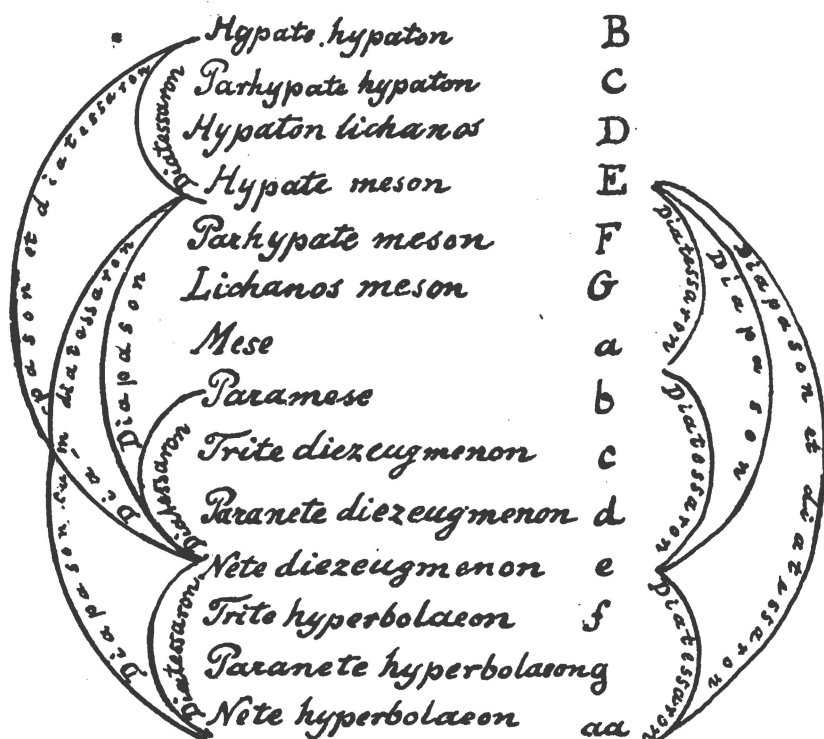 Hypate hypaton B
Parhypate hypaton C
Hypaton lichanos D
Hypate meson E
Parhypate meson F
Lichanos meson G
Mese a
Paramese b
Trite diezeugmenon c
Paranete diezeugmenon d
Nete diezeugmenon e
Trite hyperbolaeon f
Paranete hyperbolaeon g
Nete hyperbolaeon aa
Dia-pason et diatessaron
Diatessaron
Diapason cum diatessaron
Diapason
Diatessaron
Diatessaron
Diatessaron
Diapason
Diapason et diatessaron
Diatessaron
Diatessaron